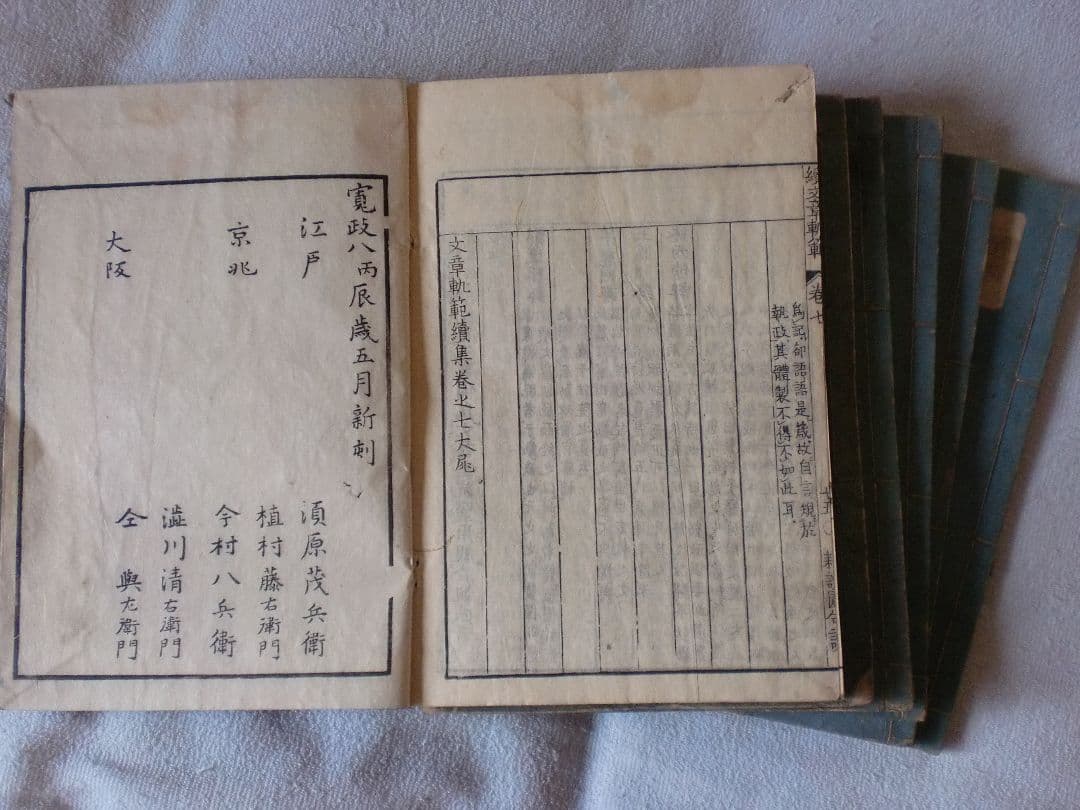 續文章軌範
卷七
執政其體製不得不如此耳
文章軌範續集卷之七大尾
寛政八丙辰歲五月新刻
江戸 須原茂兵衛
京兆 植村藤右衛門
今村八兵衛
大阪 澁川清右衛門
仝 與左衛門